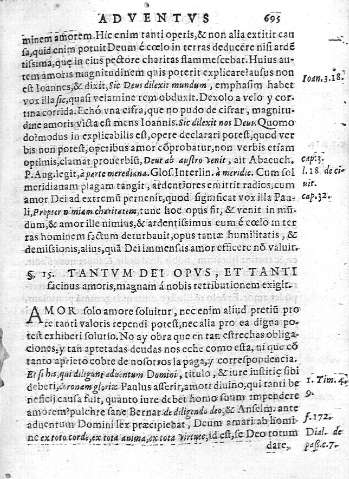 ADVENTVS 695
minem amorem. Hic enim tanti operis, & non alia extitit cau
sa, quid enim potuit Deum é cœlo in terras deducere nisi ardé
tissima, que in eius pectore charitas flamescebat. Huius au-
tem amoris magnitudinem quis poterit explicare? ausus non
est Ioannes, & dixit, Sic Deus dilexit mundum, emphasim habet
Ioan. 3. 18.
vox illa sic, quasi velamine rem obduxit. Dexolo a velo y cor-
tina corrida. Echó vna cifra, que no pudo de cifrar, magnitu-
dine amoris victa est mens Ioannis. Sic dilexit nos Deus. Quomo
do? modus in explicabilis est, opere declarari potest, quod ver
bis non potest, operibus amor cóprobatur, non verbis etiam
optimis, clamat prouerbiũ, Deut ab austro venit, ait Abacuch,
cap: 3.
P. Aug. legit, à parte meredians. Glos. Interlin. à meridie. Cum sol
l. 18. de ci-
meridianam plagam tangit, ardentiores emittrit radios, cum
uit.
amor Dei ad extremũ peruenit, quod significat vox illa Pau
cap. 32.
li, Propter nimiam charitatem, tunc hoc opus fit, & venit in mũ-
dum, & amor ille nimius, & ardentissimus cum é cœlo in ter
ras hominem factum deturbauit, opus tantæ humilitatis, &
demissionis, alius, quã Dei immensus amor efficere nõ valuit.
§. 15. TANTVM DEI OPVS, ET TANTI
facinus amoris, magnam á nobis retributionem exigit.
AMOR solo amore soluitur, nec enim aliud pretiũ pro
re tanti valoris rependi potest, nec alia pro ea digna po-
test exhiberi solutio. No ay obra que en tan estrechas obliga
ciones, y tan apretadas deudas nos eche como esta, ni que cõ
tanto aprieto cobre de nosotros la paga, y correspondencia.
Et ijs his, qui diligunt aduentum Domini, titulo, & iure iustitię sibi
1. Tim. 4.
deberi, coronam gloriæ Paulus asserit, amori diuino, qui tanti be
neficij causa fuit, quanto iure debet homo suum impendere
9.
amorem? pulchre sane Bernar. de diligendo deo, & Anselm. ante
aduentum Domini lex præcipiebat, Deum amari ab homi-
f. 172.
ne ex toto corde, ex tota anima, ex tota virtute, id est, se Deo totum
Dial. de
dare,
pass. c. 7.